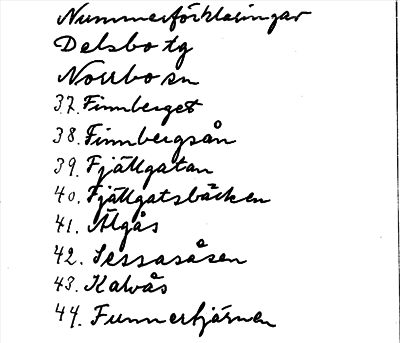 Nummerförklaringar
Delsbo tg
Norrbo sn
37. Finnberget
38. Finnbergsån
39. Fjällgatan
40. Fjällgatsbäcken
41. Älgås
42. Sessasåsen
43. Kalvås
44. Funnertjärnen